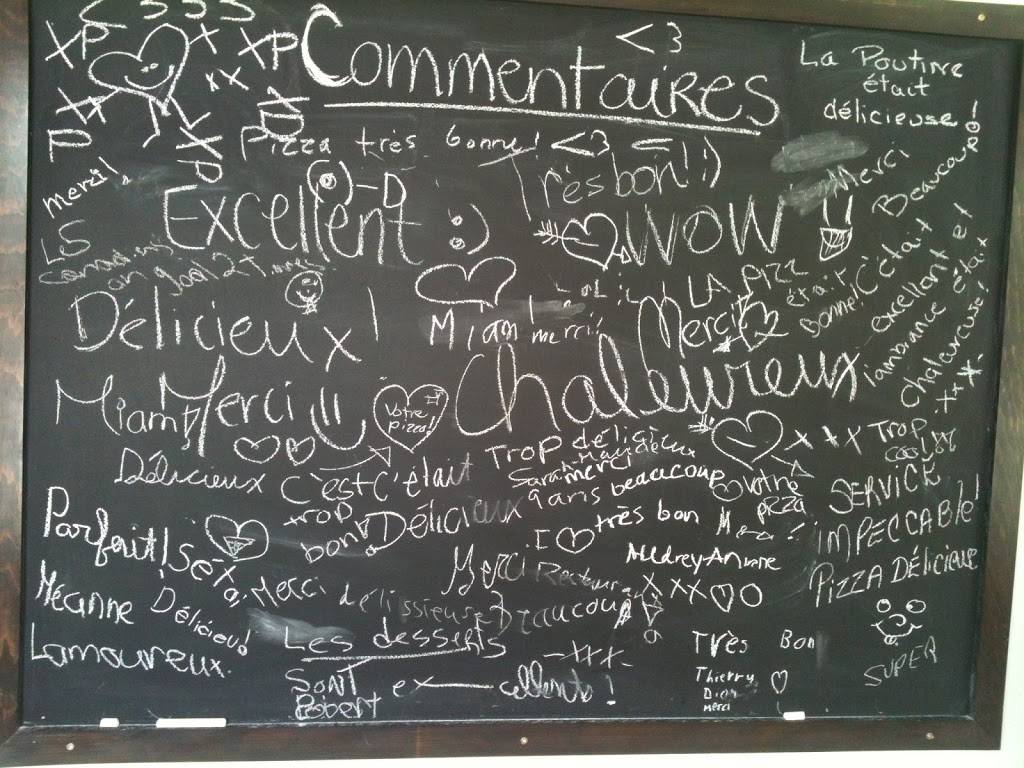 < 3 3 3
XP X XP
Commentaires
<3
XX
P
XP
La Poutine
était
délicieuse!
Pizza très bonne! <3 =)
merci!
Excellent :)
Très bon! :)
WOW
Merci
Beaucoup!
LS
LOL :)
LA PIZZ
était
Bonne!
C'était
excellent et
l'ambiance était
chalarcuse!
Délicieux!
Miam
merci!
Merci
Chaleureux
Miam
Merci =)
votre
pizza!
XXX
TROP
cool
Délicieux
C'EST
TROP
bon
C'était
Délicieux
TROP délicieux
Sara
merci
9 ans beaucoup
votre
pizza
SERVICE
IMPECCABLE!
PIZZA DÉLICIEUSE
SUPER
Parfait!
I ♡
très bon
Audrey-Ann
Merci
XXX♡♡
Mécanne
Lamoureux
Délicieu!
Merci délissieuse
Beaucoup
Les desserts
SONT ex—cellents!
Robert
-XXX-
Très Bon
Thierry
Dion
merci